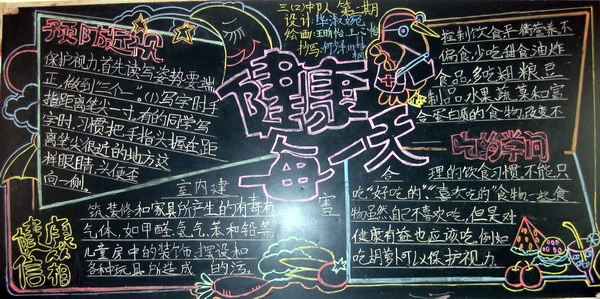 三(2)中队 第二期
设计:华淑婉
预防近视
保护视力,首先读写姿势要端
正,做到“三个一”。(1)写字时手
指距离笔尖一寸,有的同学写
字时,习惯把手指头握在距
离笔尖很近的地方,这
样眼睛、头便歪
向一侧。
健康每一天
拉制饮食平衡营养不
偏食少吃甜食油炸
食品多吃粗粮豆
制品水果蔬菜和富
含蛋白质的食物改变不
吃的学问
合理的饮食习惯,不能只
吃“好吃的”“喜欢吃的”食物一些食
物虽然自己不喜欢吃,但是对
健康有益也应该吃,例如
吃胡萝卜可以保护视力。
室内建
筑、装修和家具所产生的有毒有害
气体,如甲醛、氡气、苯和铅等,
儿童房中的装饰、摆设和
各种玩具所造成的污
健康
信箱